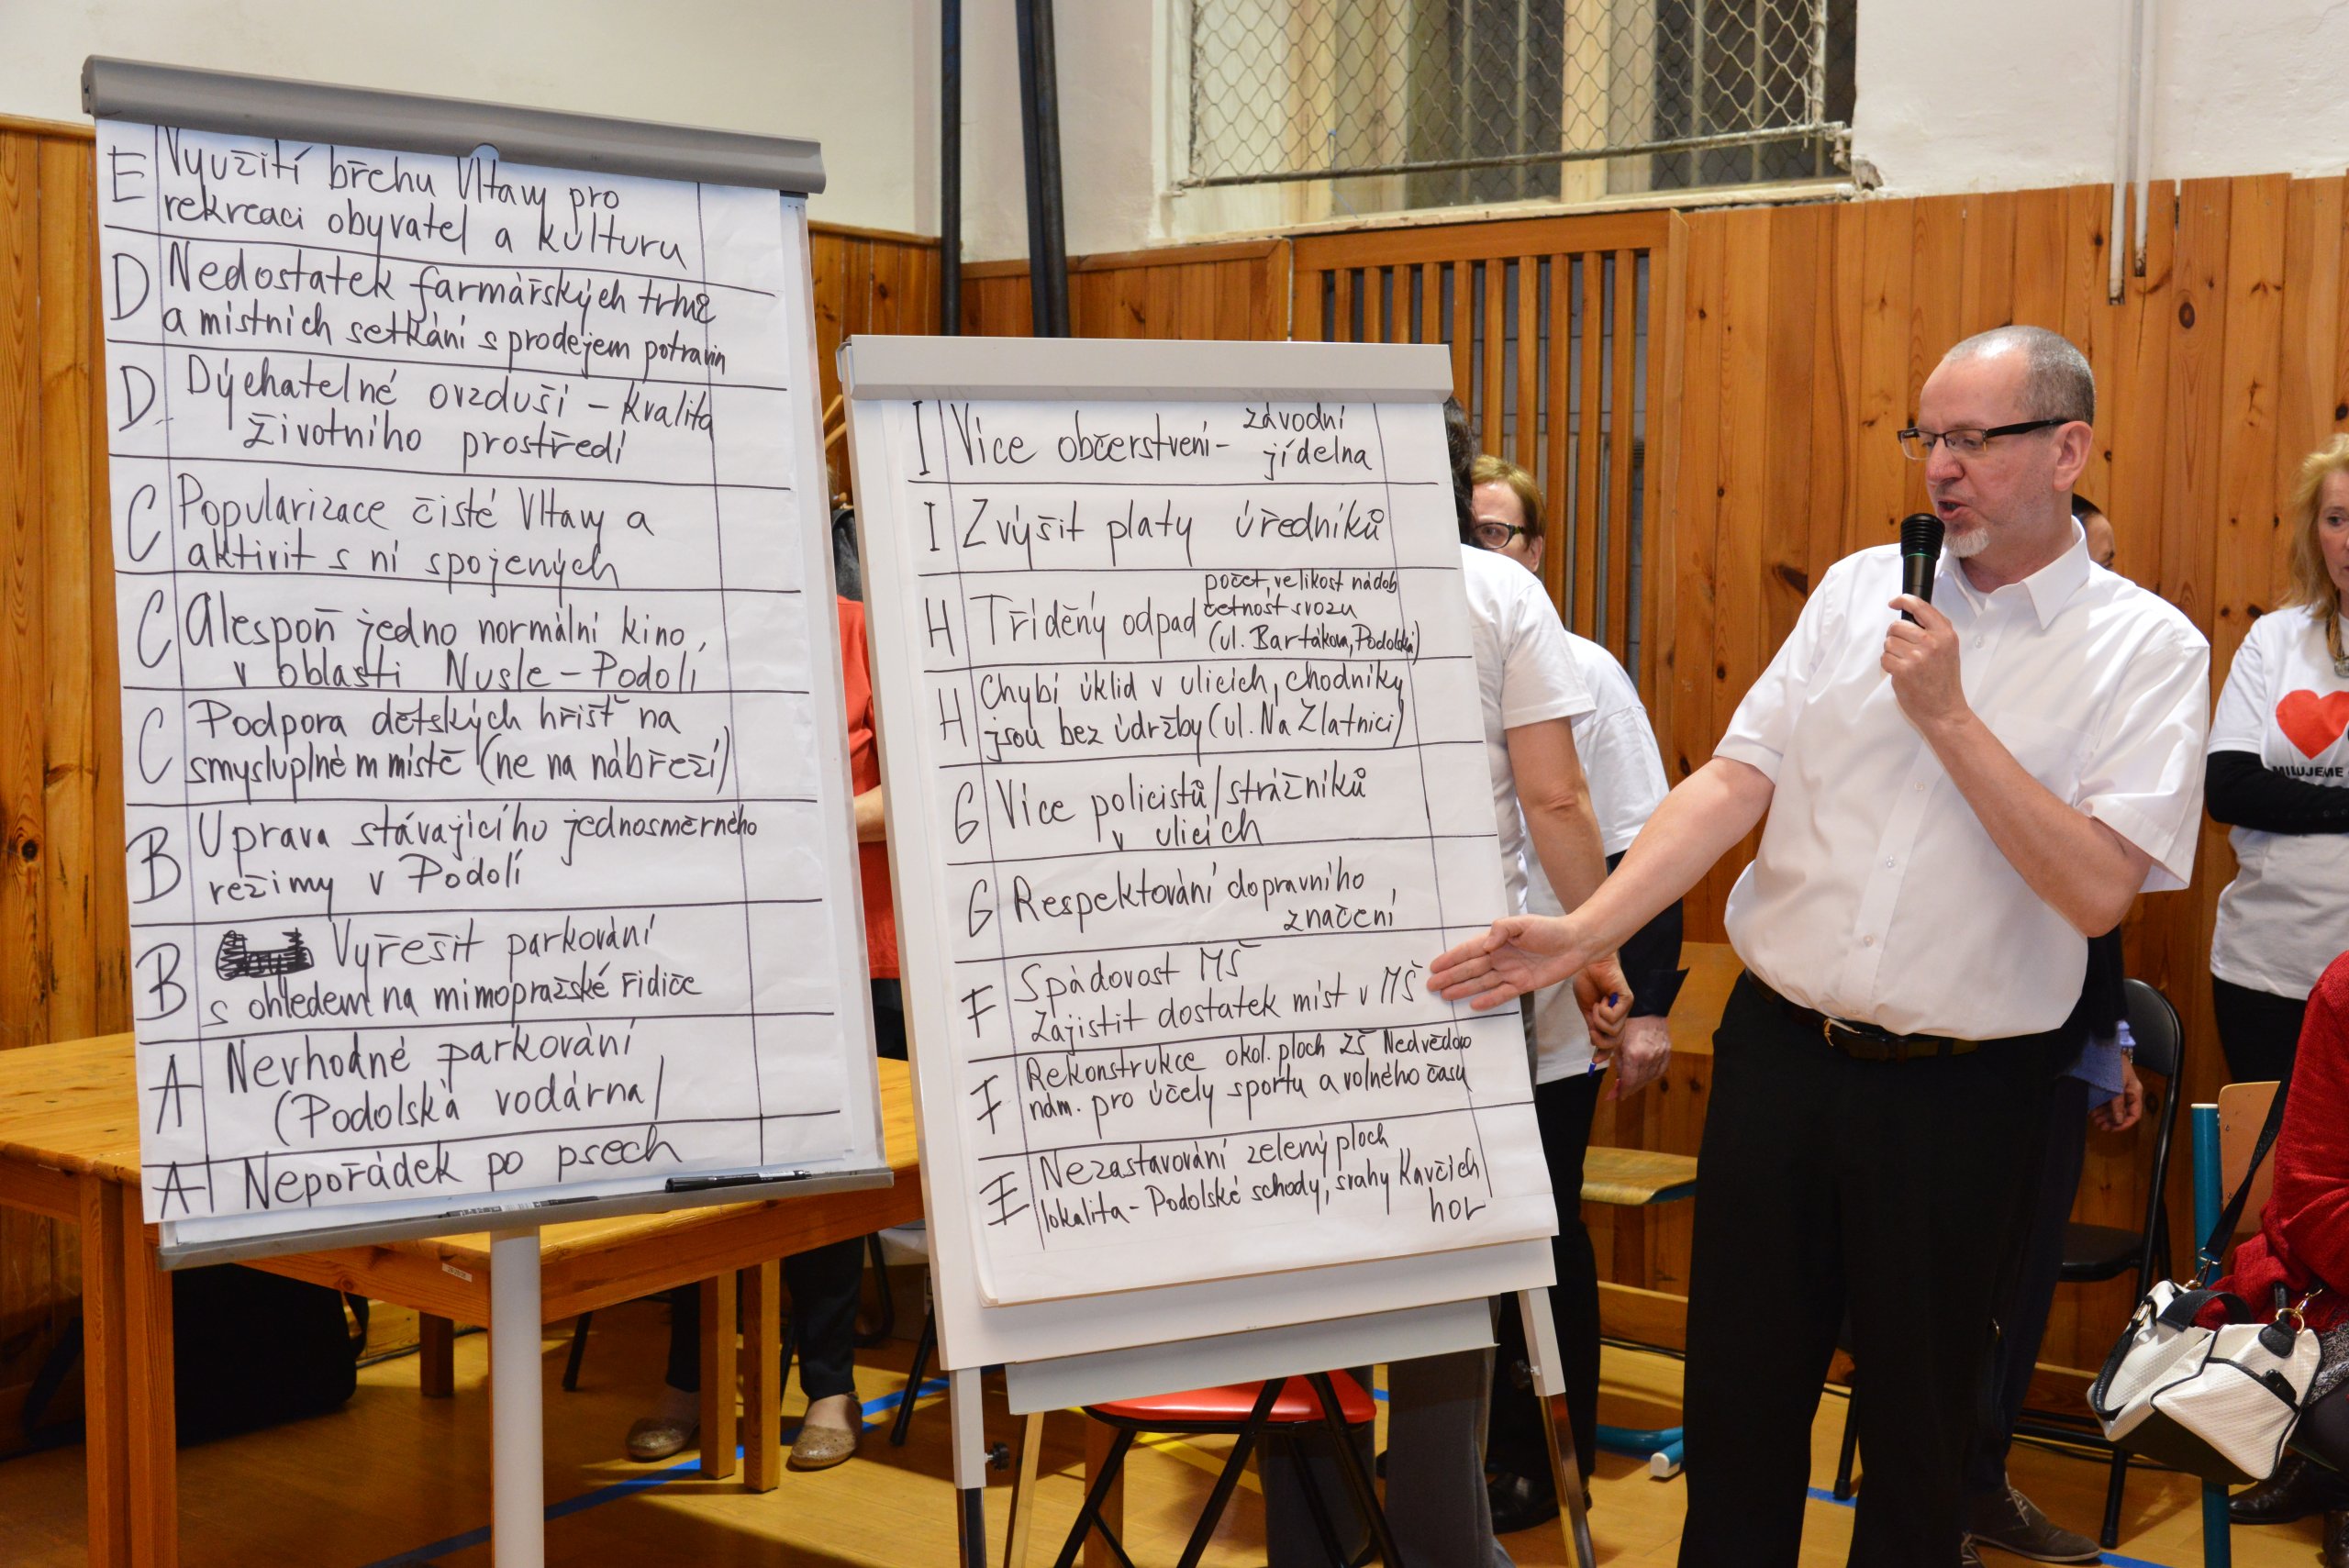 E Využití břehu Vltavy pro
rekreaci obyvatel a kulturu
D Nedostatek farmářských trhů
a místních setkání s prodejem potravin
D Dýchatelné ovzduší - kvalita
životního prostředí
C Popularizace čisté Vltavy a
aktivit s ní spojených
C Alespoň jedno normální kino,
v oblasti Nusle - Podolí
C Podpora dětských hřišť na
smysluplném místě (ne na nábřeží)
B Uprava stávajícího jednosměrného
režimy v Podolí
B Vyřešit parkování
s ohledem na mimopražské řidiče
A Nevhodné parkování
(Podolská vodárna)
A Nepořádek po psech
I Více občerstvení - závodní
jídelna
I Zvýšit platy úředníků
H Tříděný odpad počet, velikost nádob
četnost svozu
(ul. Bartákova, Podolská)
H Chybí úklid v ulicích, chodníky
jsou bez údržby (ul. Na Zlatnici)
G Více policistů/strážníků
v ulicích
G Respektování dopravního
značení
F Spádovost MŠ
Zajistit dostatek míst v MŠ
F Rekonstrukce okol. ploch ZŠ Nedvědovo
nám. pro účely sportu a volného času
E Nezastavování zelený ploch
lokalita - Podolské schody, svahy Kavčích
hor
MILUJEME